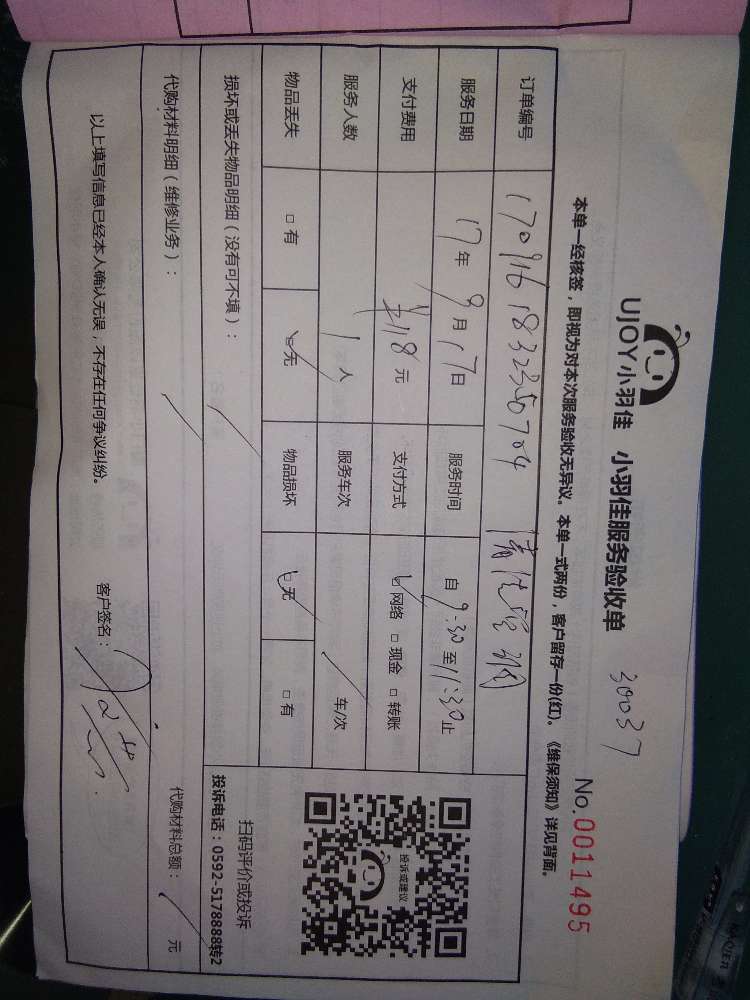 UJOY小羽佳 小羽佳服务验收单 30037
No.0011495
本单一经核签，即视为对本次服务验收无异议。本单一式两份，客户留存一份(红)。《维保须知》详见背面。
订单编号 1709161832350704
服务日期 17年9月17日 服务时间 自9:30至11:30止
支付费用 ¥118元 支付方式 ☑网络 □现金 □转账
服务人数 1人 服务车次 / 车/次
物品丢失 □有 ☑无 物品损坏 ☑无 □有
损坏或丢失物品明细（没有可不填）： /
代购材料明细（维修业务）： /
代购材料总额： / 元
投诉或建议
扫码评价或投诉
投诉电话：0592-5178888转2
以上填写信息已经本人确认无误，不存在任何争议纠纷。 客户签名：